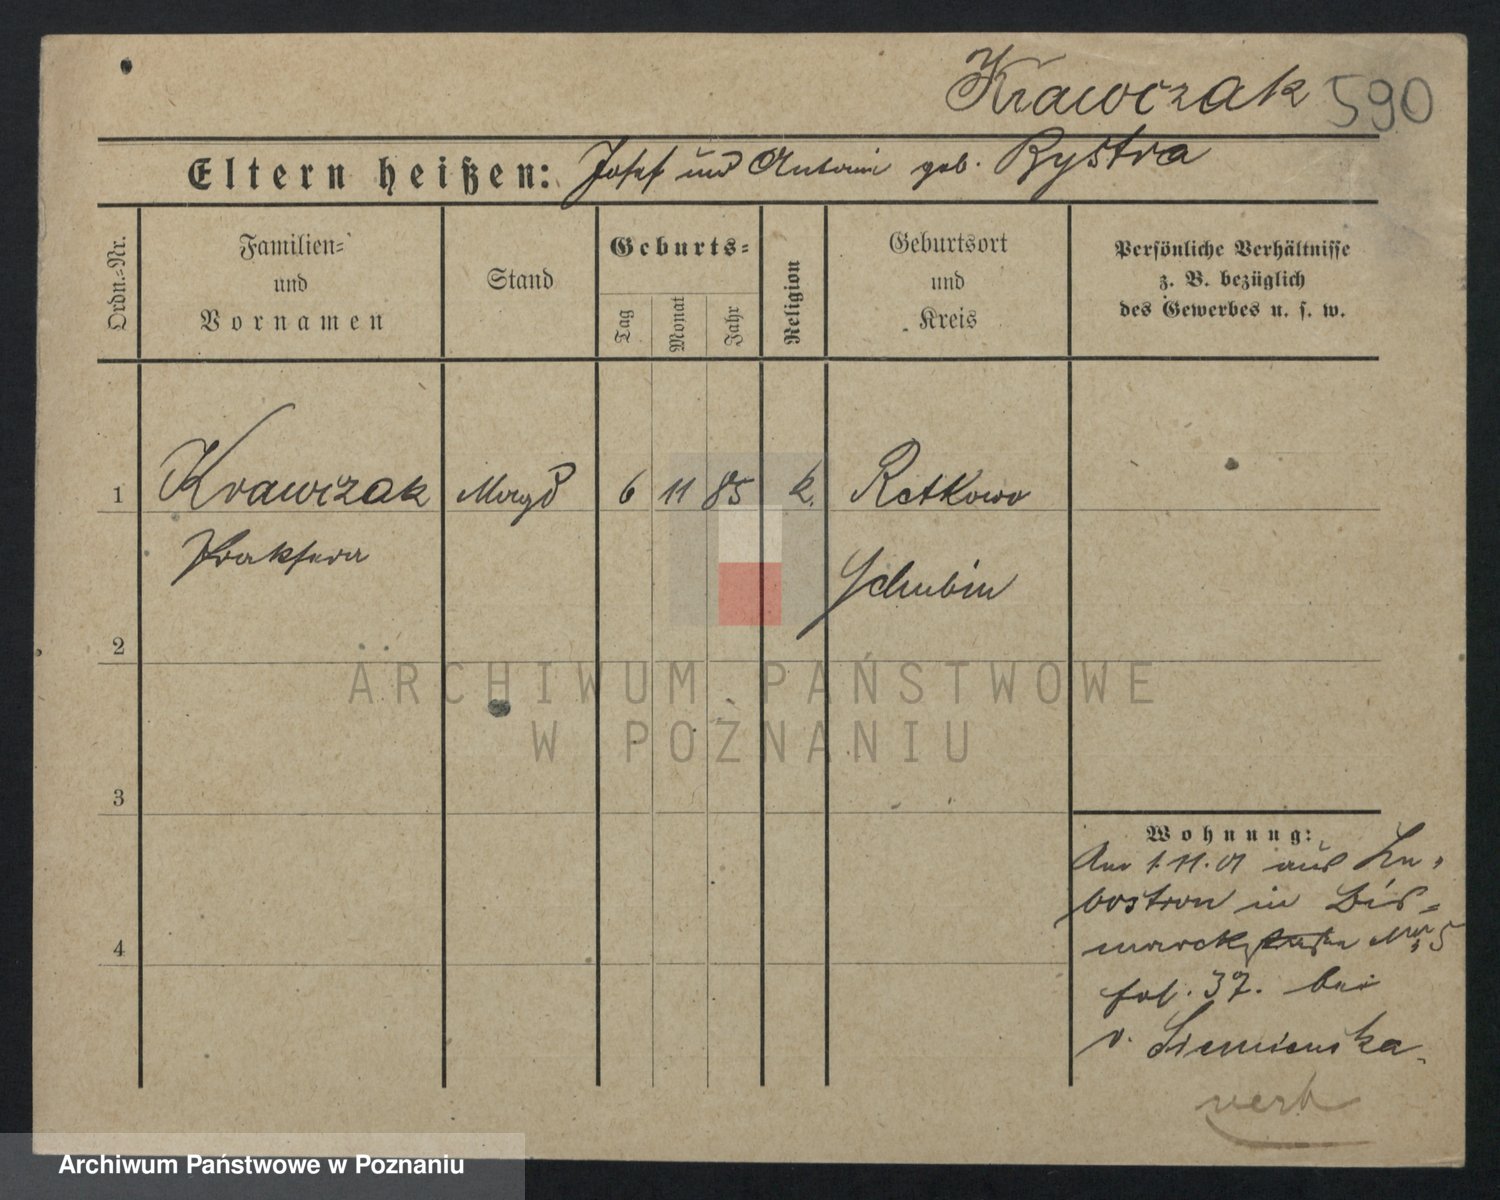 Krawczak 590
Eltern heißen: Josef und Antonie geb. Bystra
Ordn.-Nr.
Familien-
und
Vornamen
Stand
Geburts-
Tag
Monat
Jahr
Religion
Geburtsort
und
Kreis
Persönliche Verhältnisse
z. B. bezüglich
des Gewerbes u. s. w.
1 Krawczak Magd 6 11 85 k. Retkowo
Schubin
2
3
4
Wohnung:
Am 1.11.01 aus Lu-
bostron in Bis-
marckstraße No 5
fol. 37. bei
v. Siemienska
verh
ARCHIWUM PAŃSTWOWE
W POZNANIU
Archiwum Państwowe w Poznaniu